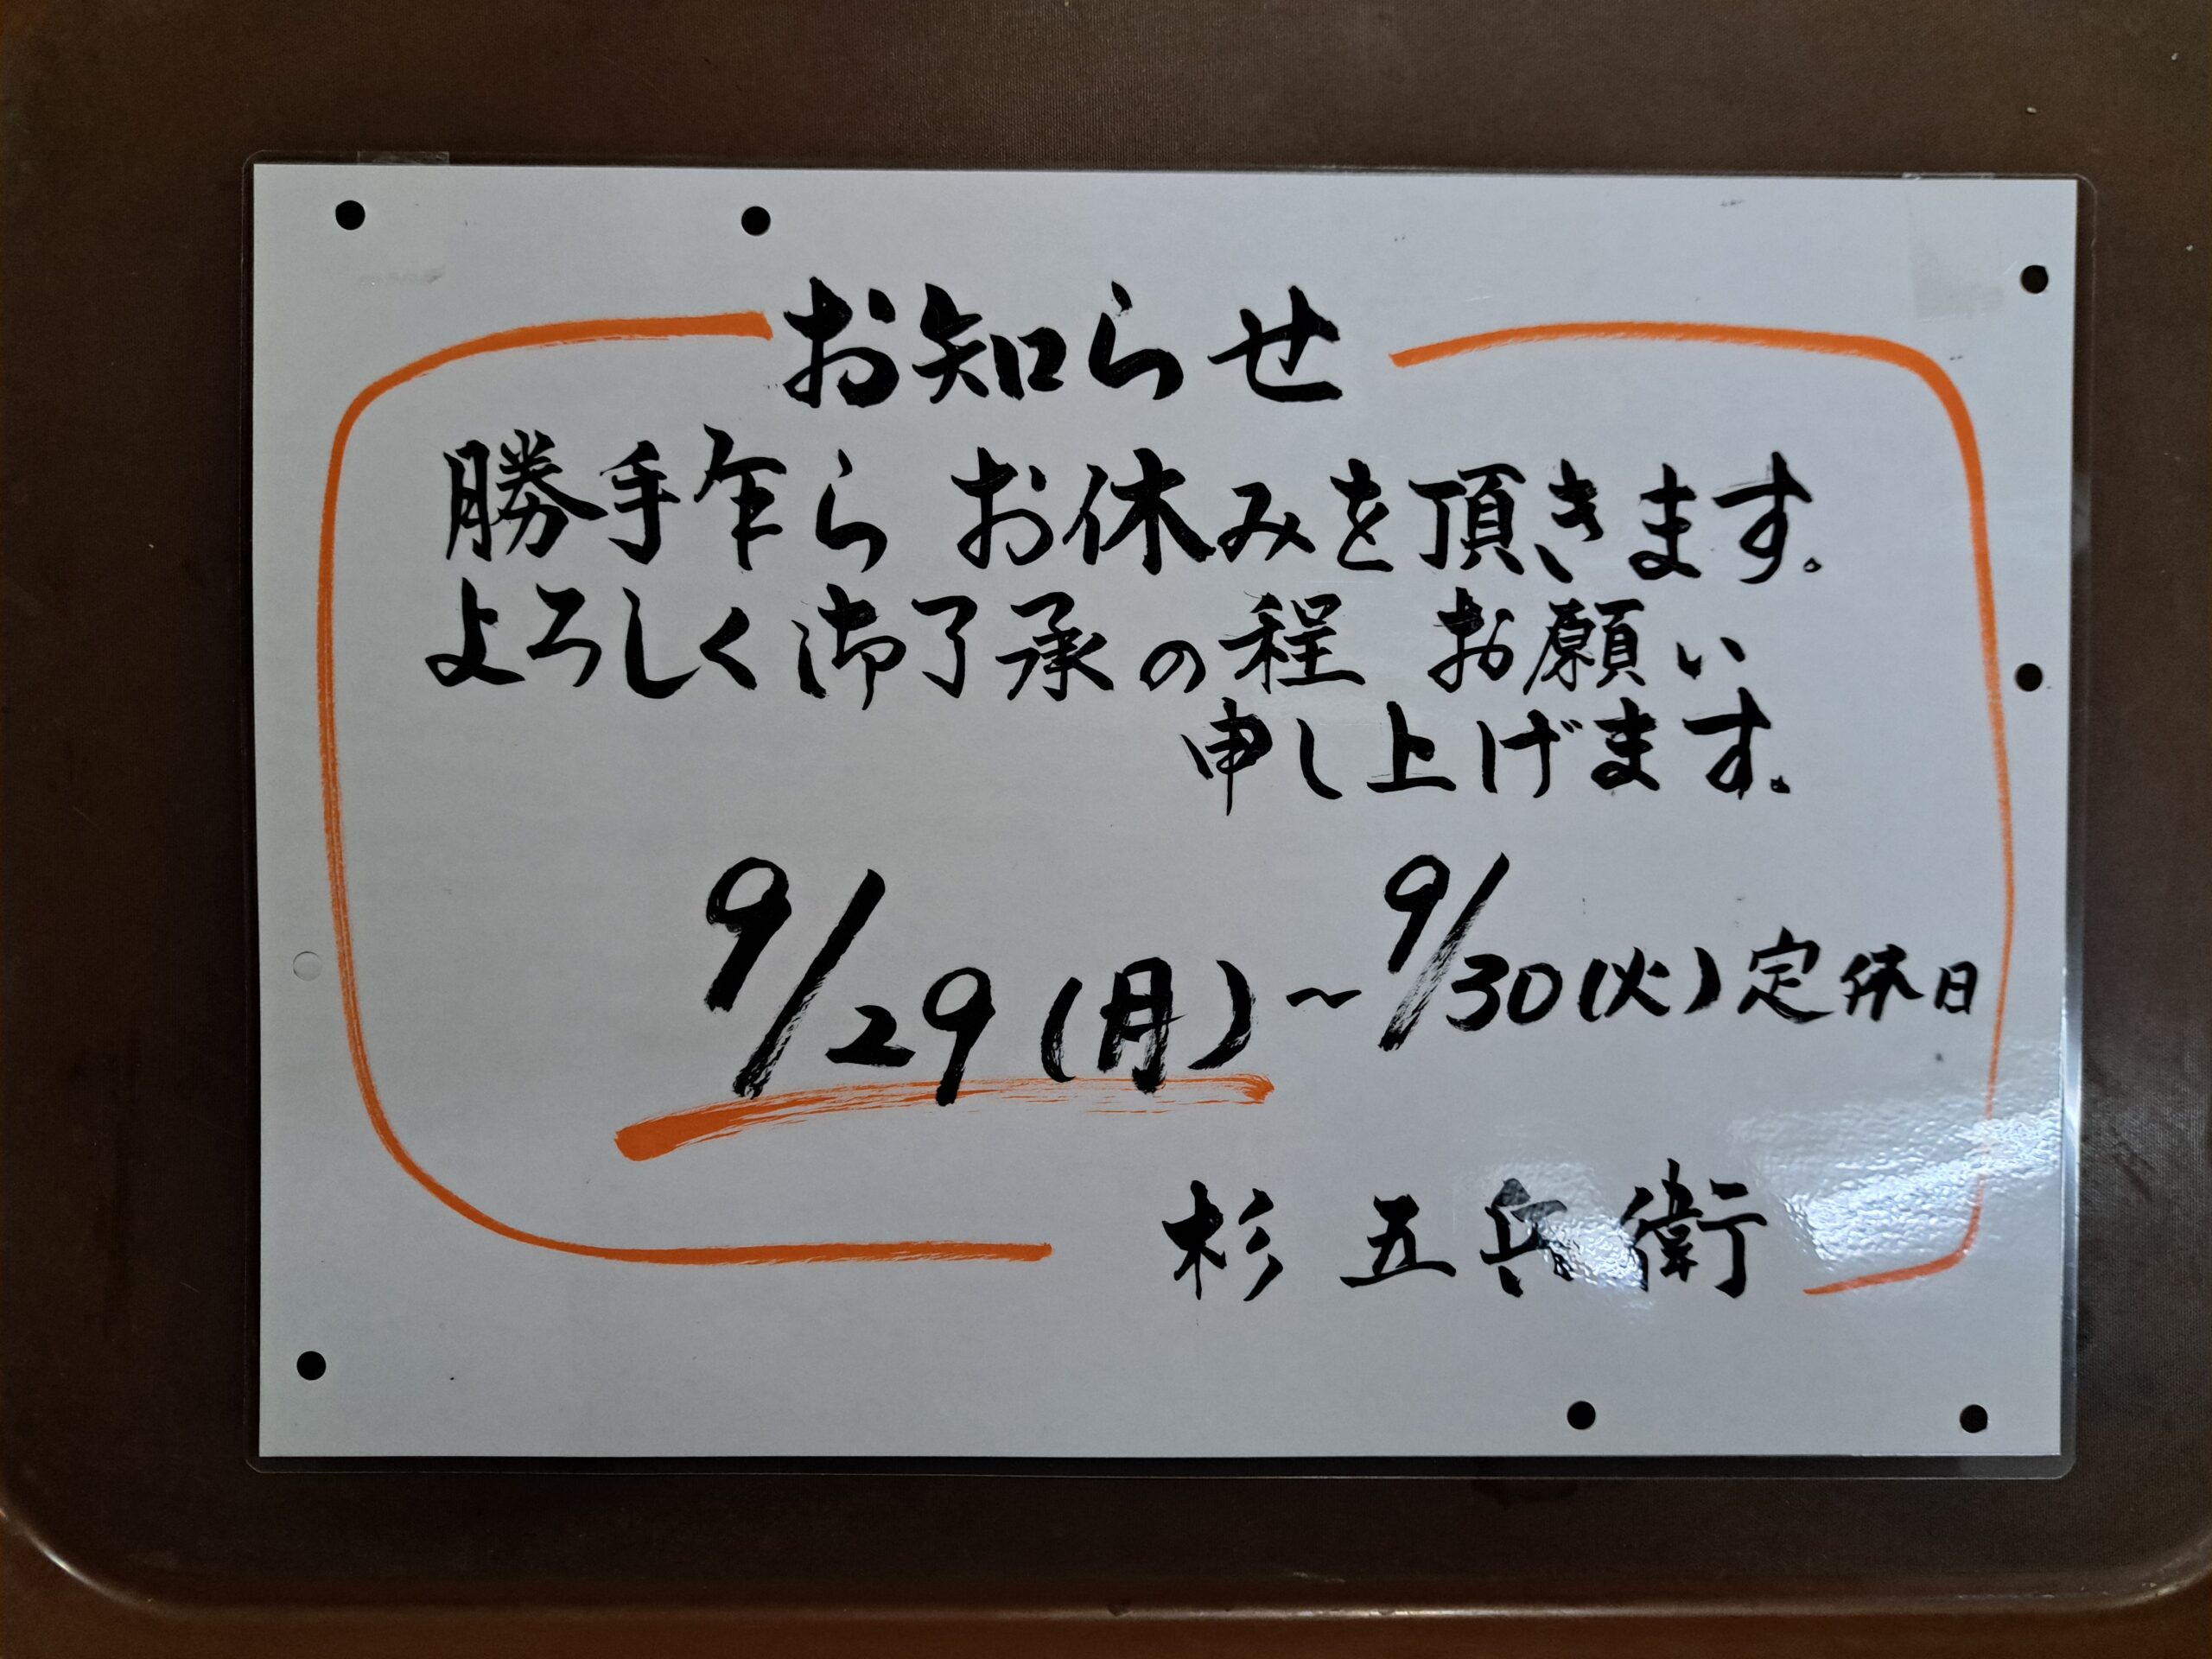 お知らせ
勝手乍らお休みを頂きます。
よろしく御了承の程お願い
申し上げます。
9/29(月)~9/30(火)定休日
杉五兵衛